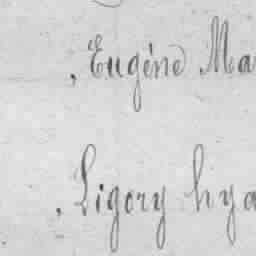 , Eugéne Ma
, Ligory hya